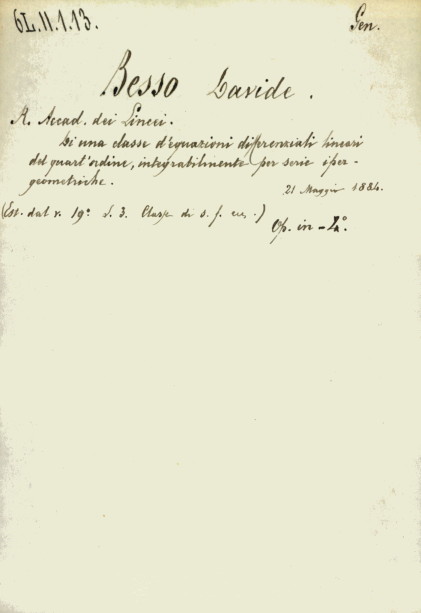 6L.II.1.13.
Gen.
Besso Davide.
R. Accad. dei Lincei.
Di una classe d'equazioni differenziali lineari
del quart'ordine, integrabilmente per serie iper-
geometriche.
21 Maggio 1884.
(Est. dal v. 19° S. 3. Classe di s. f. ecc.)
Op. in-4°.